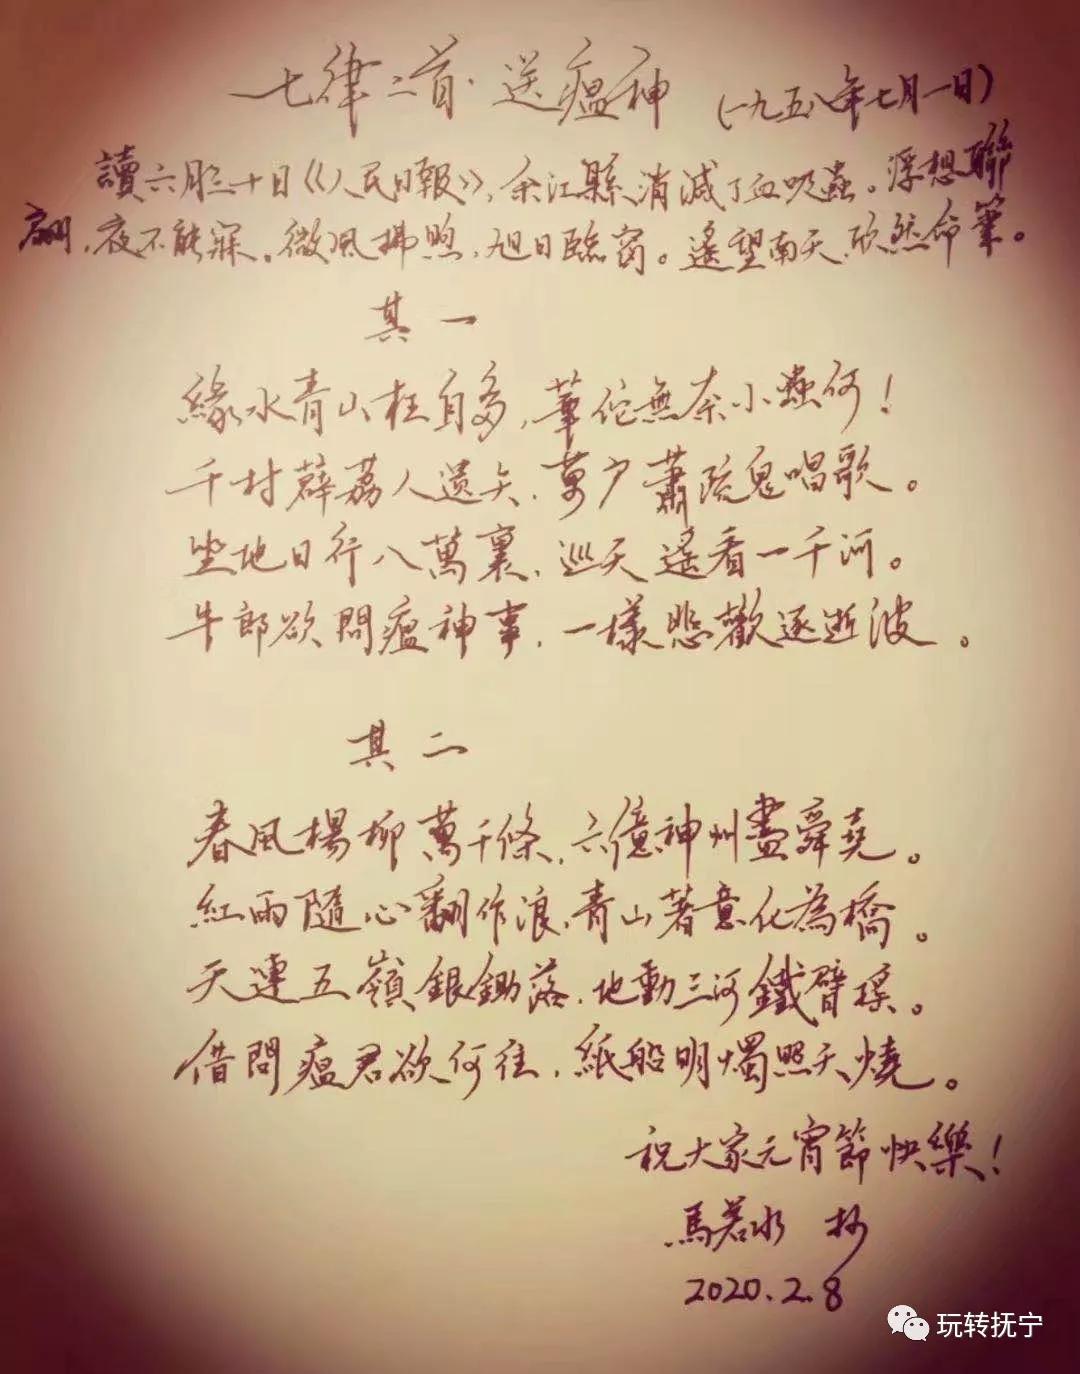 七律二首·送瘟神(一九五八年七月一日)
讀六月三十日《人民日報》,余江縣消滅了血吸蟲。浮想聯
翩,夜不能寐。微風拂煦,旭日臨窗。遙望南天,欣然命筆。
其一
緣水青山枉自多,華佗無奈小蟲何!
千村薜荔人遺矢,萬户蕭疏鬼唱歌。
坐地日行八萬裏,巡天遙看一千河。
牛郎欲問瘟神事,一樣悲歡逐逝波。
其二
春風楊柳萬千條,六億神州盡舜堯。
紅雨隨心翻作浪,青山著意化為橋。
天連五嶺銀鋤落,地動三河鐵臂搖。
借問瘟君欲何往,紙船明燭照天燒。
祝大家元宵節快樂!
馬若水 抄
2020.2.8
玩转抚宁